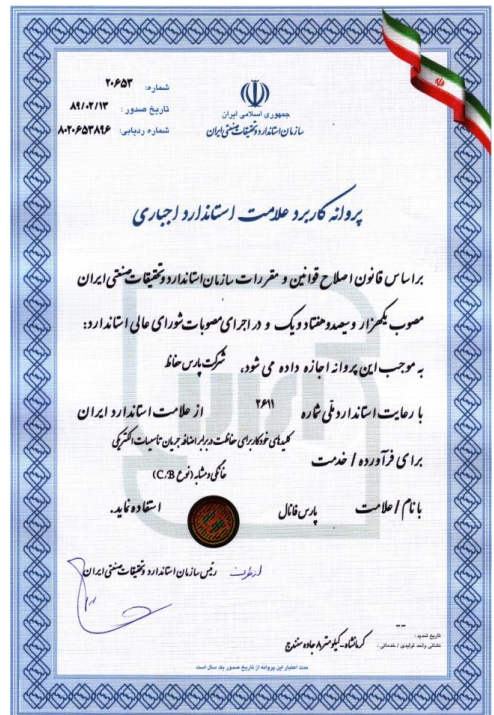 شماره: ۲۰۶۵۳
تاریخ صدور: ۸۹/۰۲/۱۳
شماره ردیابی: ۸۰۲۰۶۵۳۸۹۶
جمهوری اسلامی ایران
سازمان استاندارد و تحقیقات صنعتی ایران
پروانه کاربرد علامت استاندارد اجباری
براساس قانون اصلاح قوانین و مقررات سازمان استاندارد و تحقیقات صنعتی ایران
مصوب یکهزار و سیصد و هفتاد و یک و در اجرای مصوبات شورای عالی استاندارد:
به موجب این پروانه اجازه داده می شود، شرکت پارس حفاظ
با رعایت استاندارد ملّی شماره ۲۶۱۱ از علامت استاندارد ایران
کلیدهای خودکار برای حفاظت در برابر اضافه جریان تاسیسات الکتریکی
برای فرآورده / خدمت
خانگی و مشابه (نوع C،B)
با نام / علامت پارس فانال استفاده نماید.
از طرف رئیس سازمان استاندارد و تحقیقات صنعتی ایران
تاریخ تمدید: --
نشانی واحد تولیدی / خدماتی: کرمانشاه - کیلومتر ۸ جاده سنندج
مدت اعتبار این پروانه از تاریخ صدور یک سال است